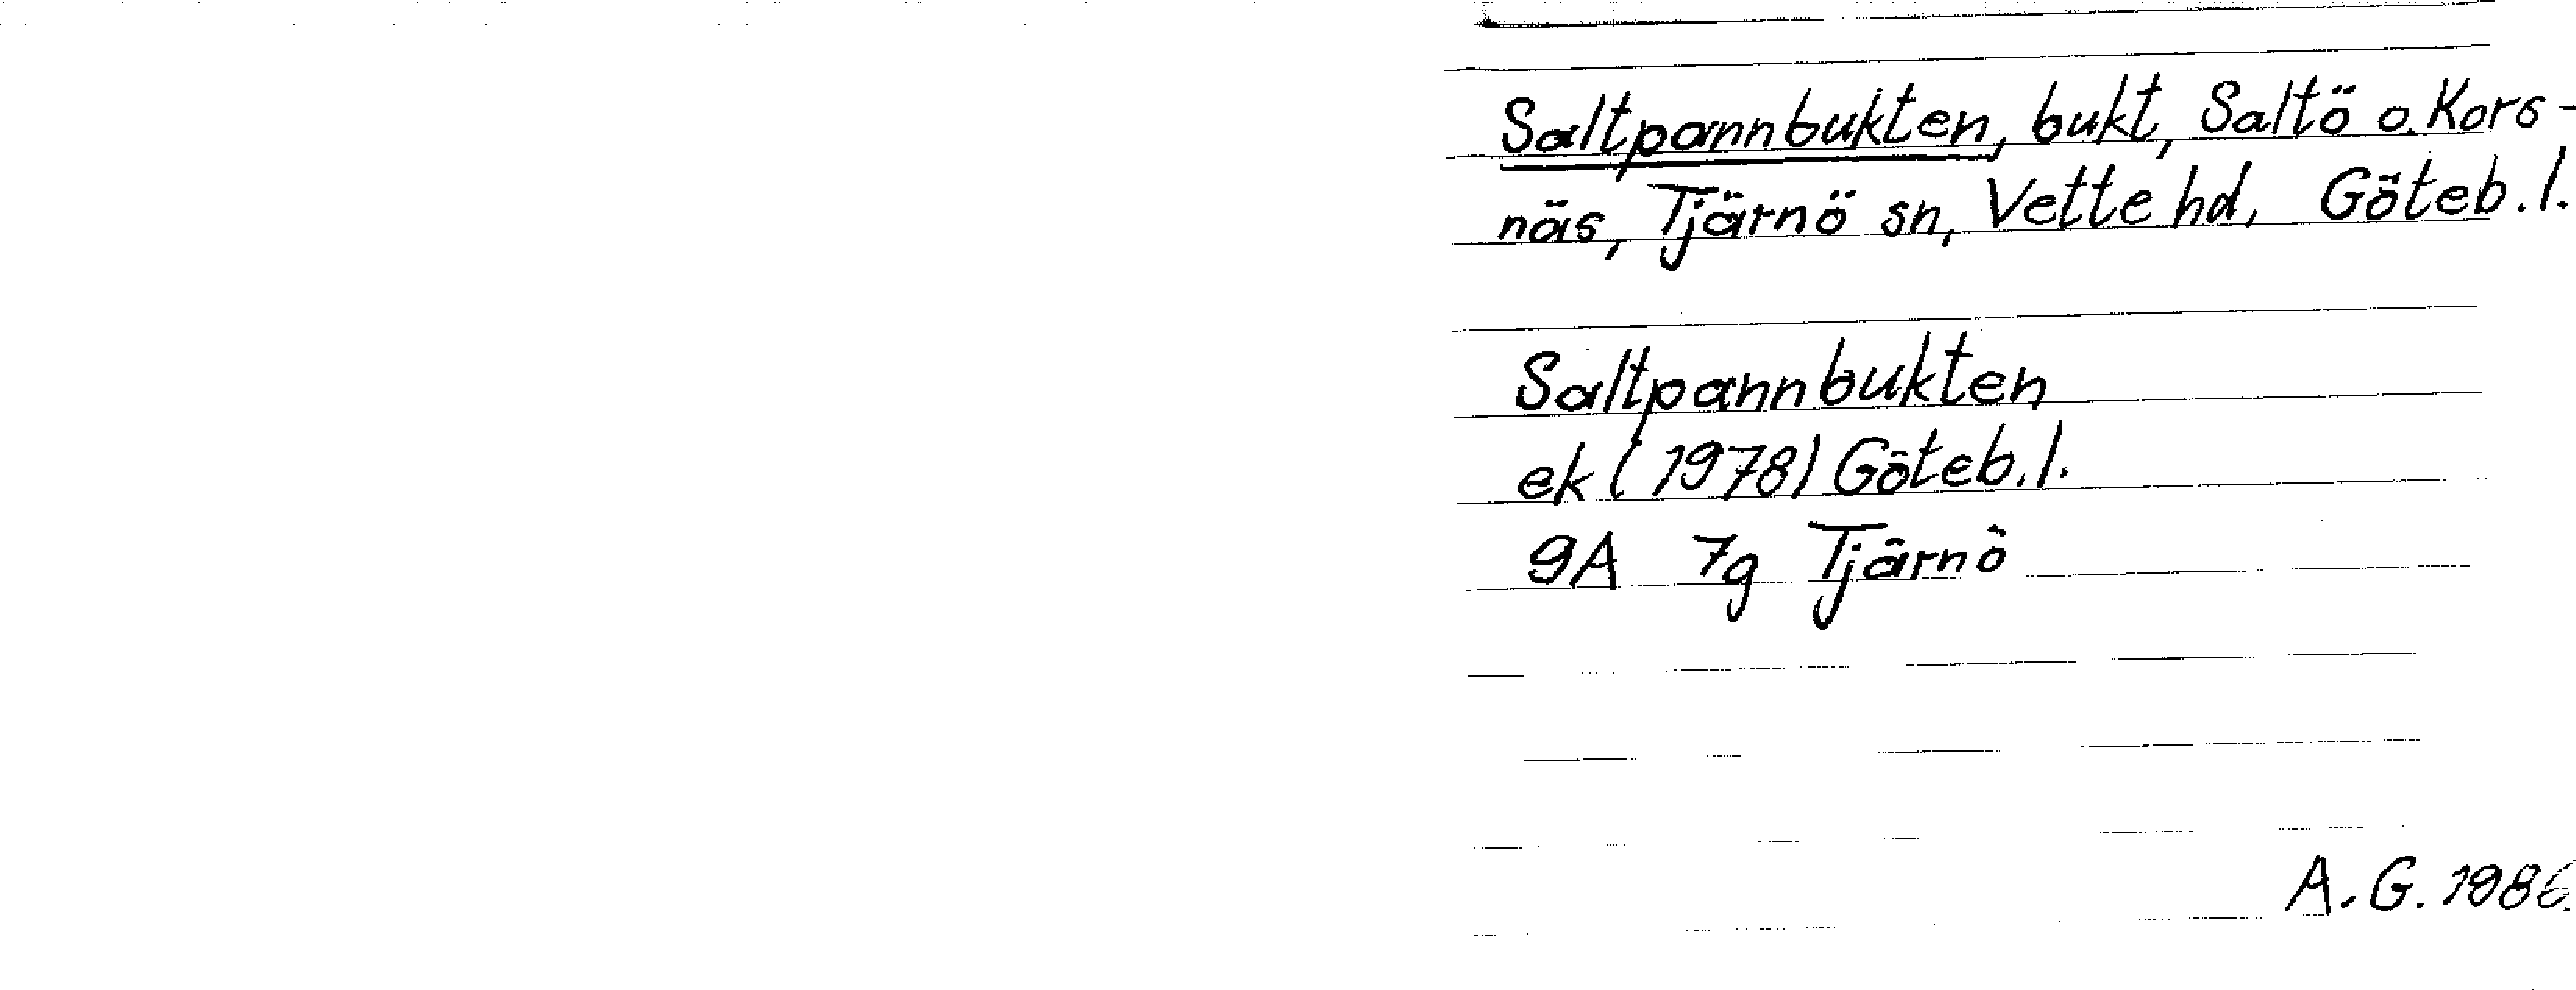 Saltpannbukten, bukt, Saltö o. Kors-
näs, Tjärnö sn, Vette hd, Göteb.l.
Saltpannbukten
ek (1978) Göteb.l.
9A 7g Tjärnö
A.G. 1986.